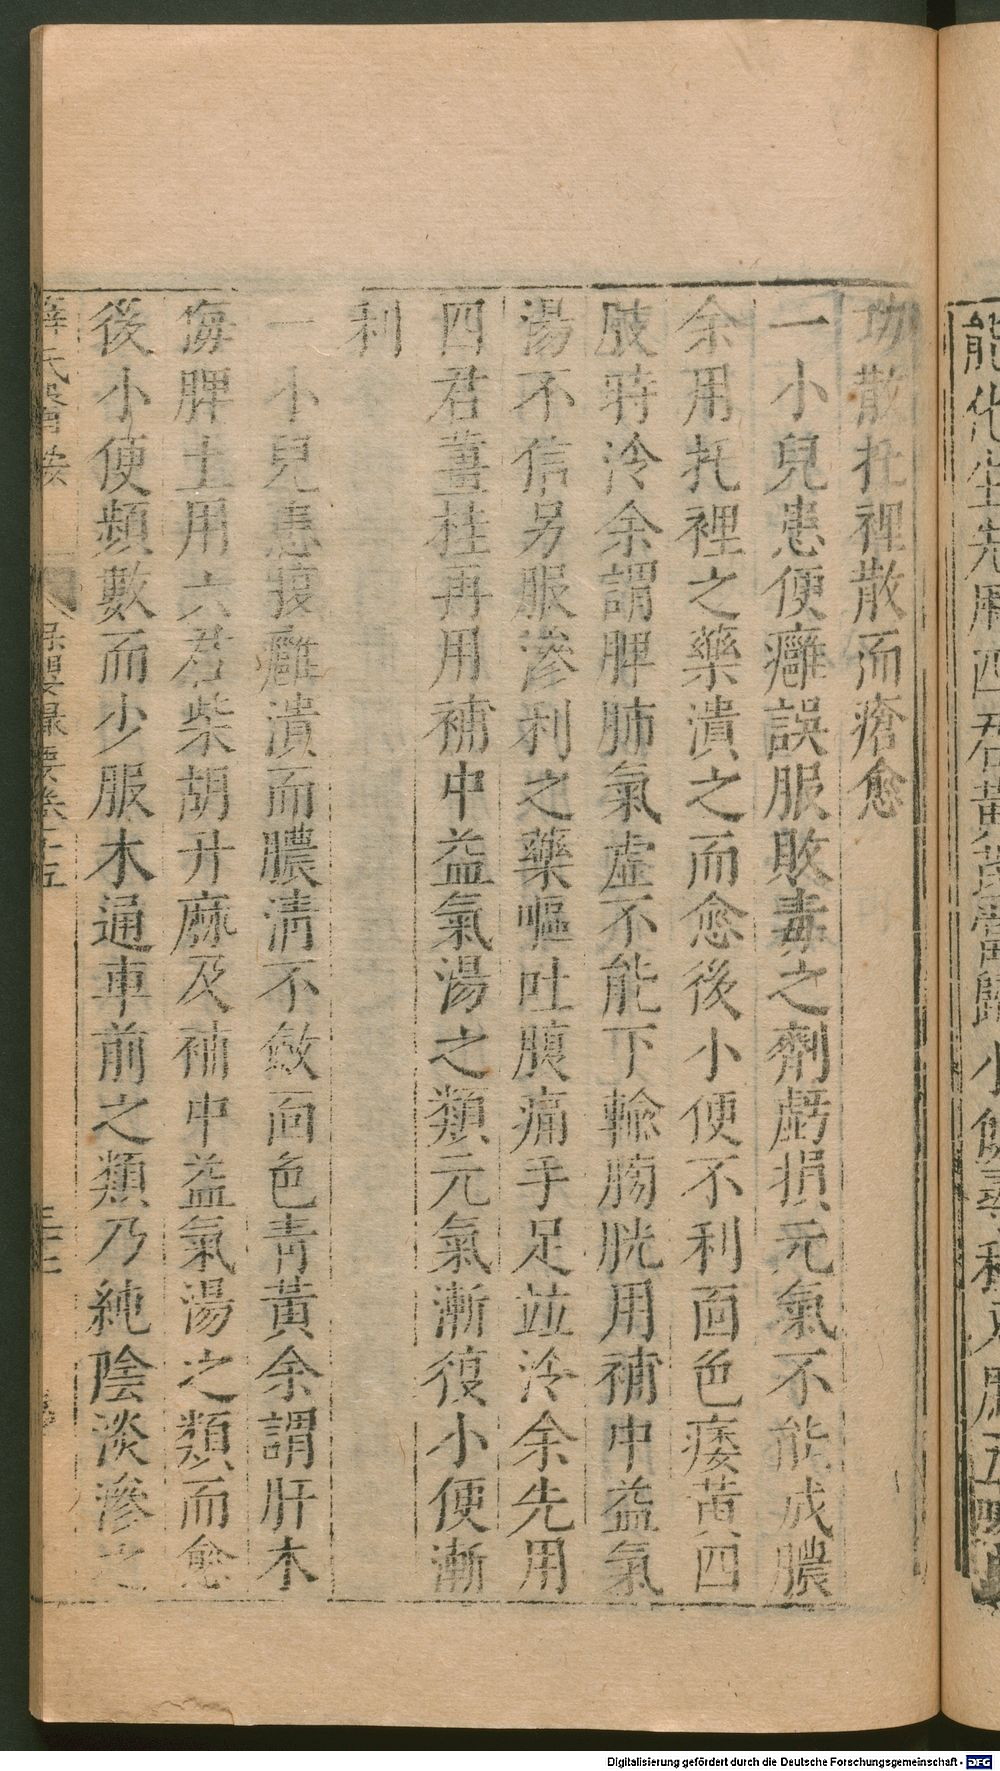 能化生先用四君黃芪當歸
功散托裡散而瘡愈
一小兒患便癰誤服敗毒之劑虧損元氣不能成膿
余用托裡之藥潰之而愈後小便不利面色痿黃四
肢時冷余謂脾肺氣虛不能下輸膀胱用補中益氣
湯不信另服滲利之藥嘔吐腹痛手足並冷余先用
四君薑桂再用補中益氣湯之類元氣漸復小便漸
利
一小兒患痘癰潰而膿清不斂面色青黃余謂肝木
侮脾土用六君柴胡升麻及補中益氣湯之類而愈
後小便頻數而少服木通車前之類乃純陰淡滲之
薛氏醫按 保嬰撮要卷十五
Digitalisierung gefördert durch die Deutsche Forschungsgemeinschaft - DFG